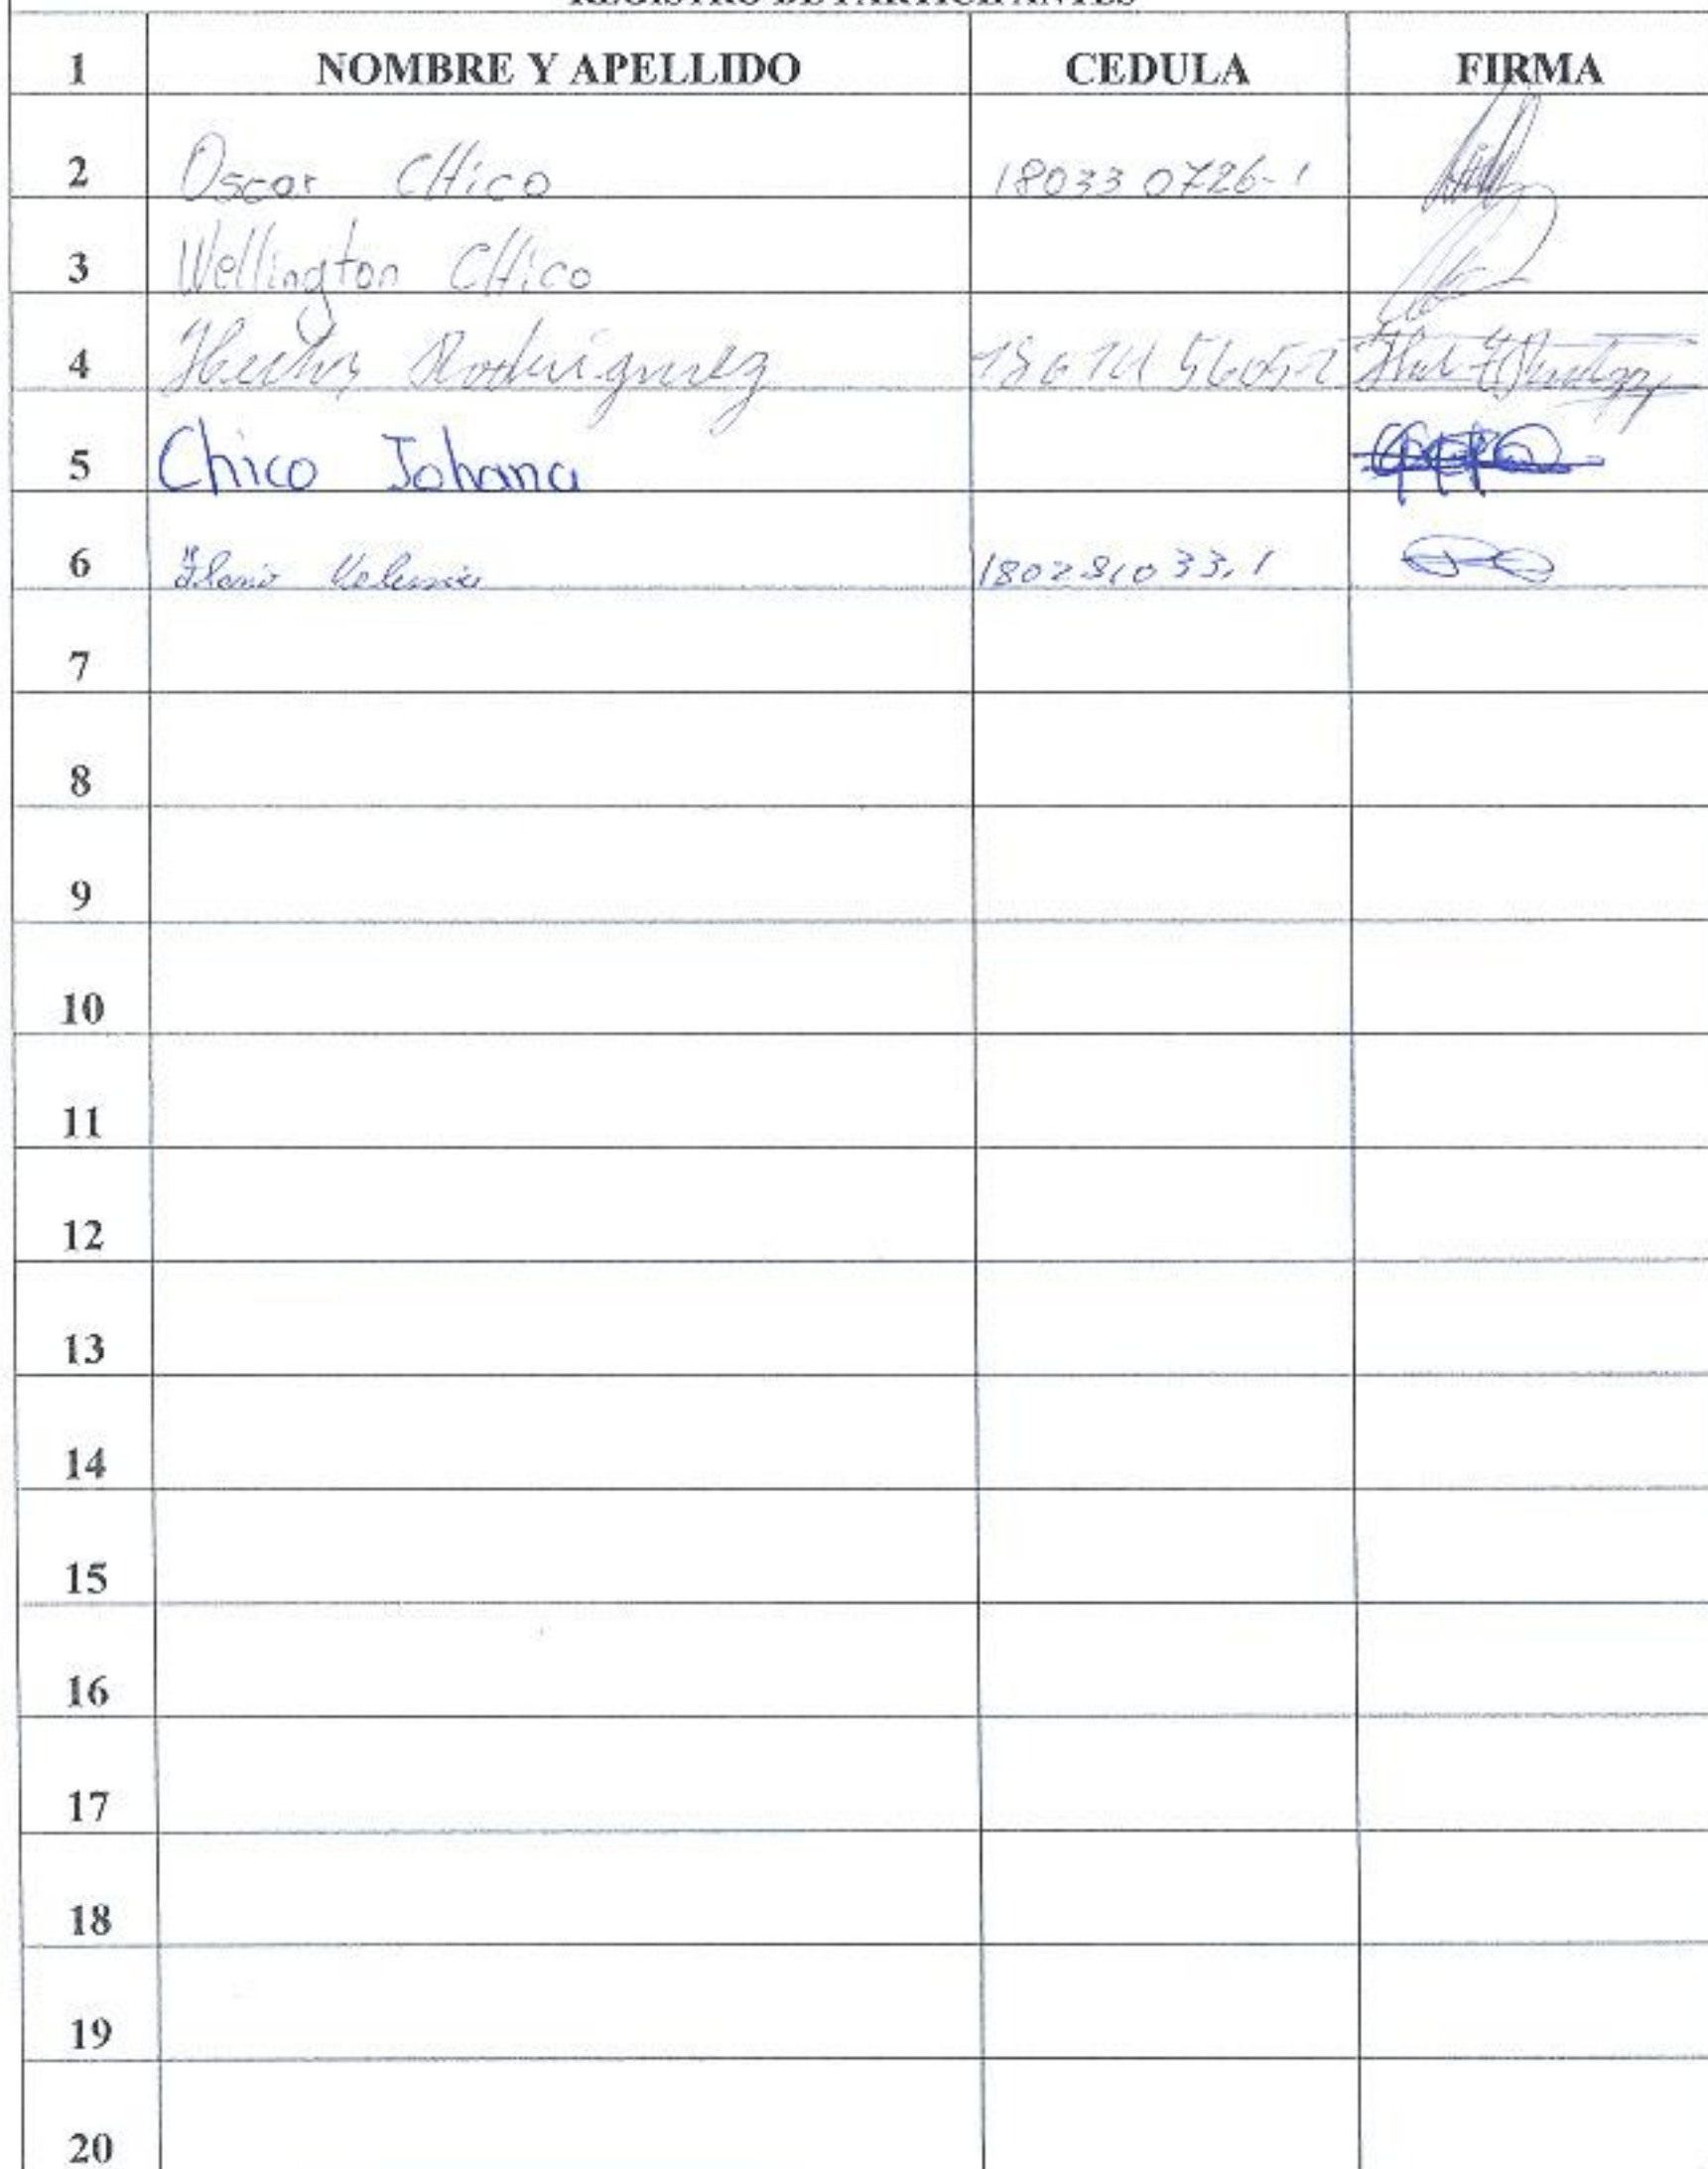 REGISTRO DE PARTICIPANTES
1 NOMBRE Y APELLIDO CEDULA FIRMA
2 Oscar CHico 18033 0726-1
3 Wellington CHico
4 Rodriguez
5 Chico Johana
6 180281033,1
7
8
9
10
11
12
13
14
15
16
17
18
19
20